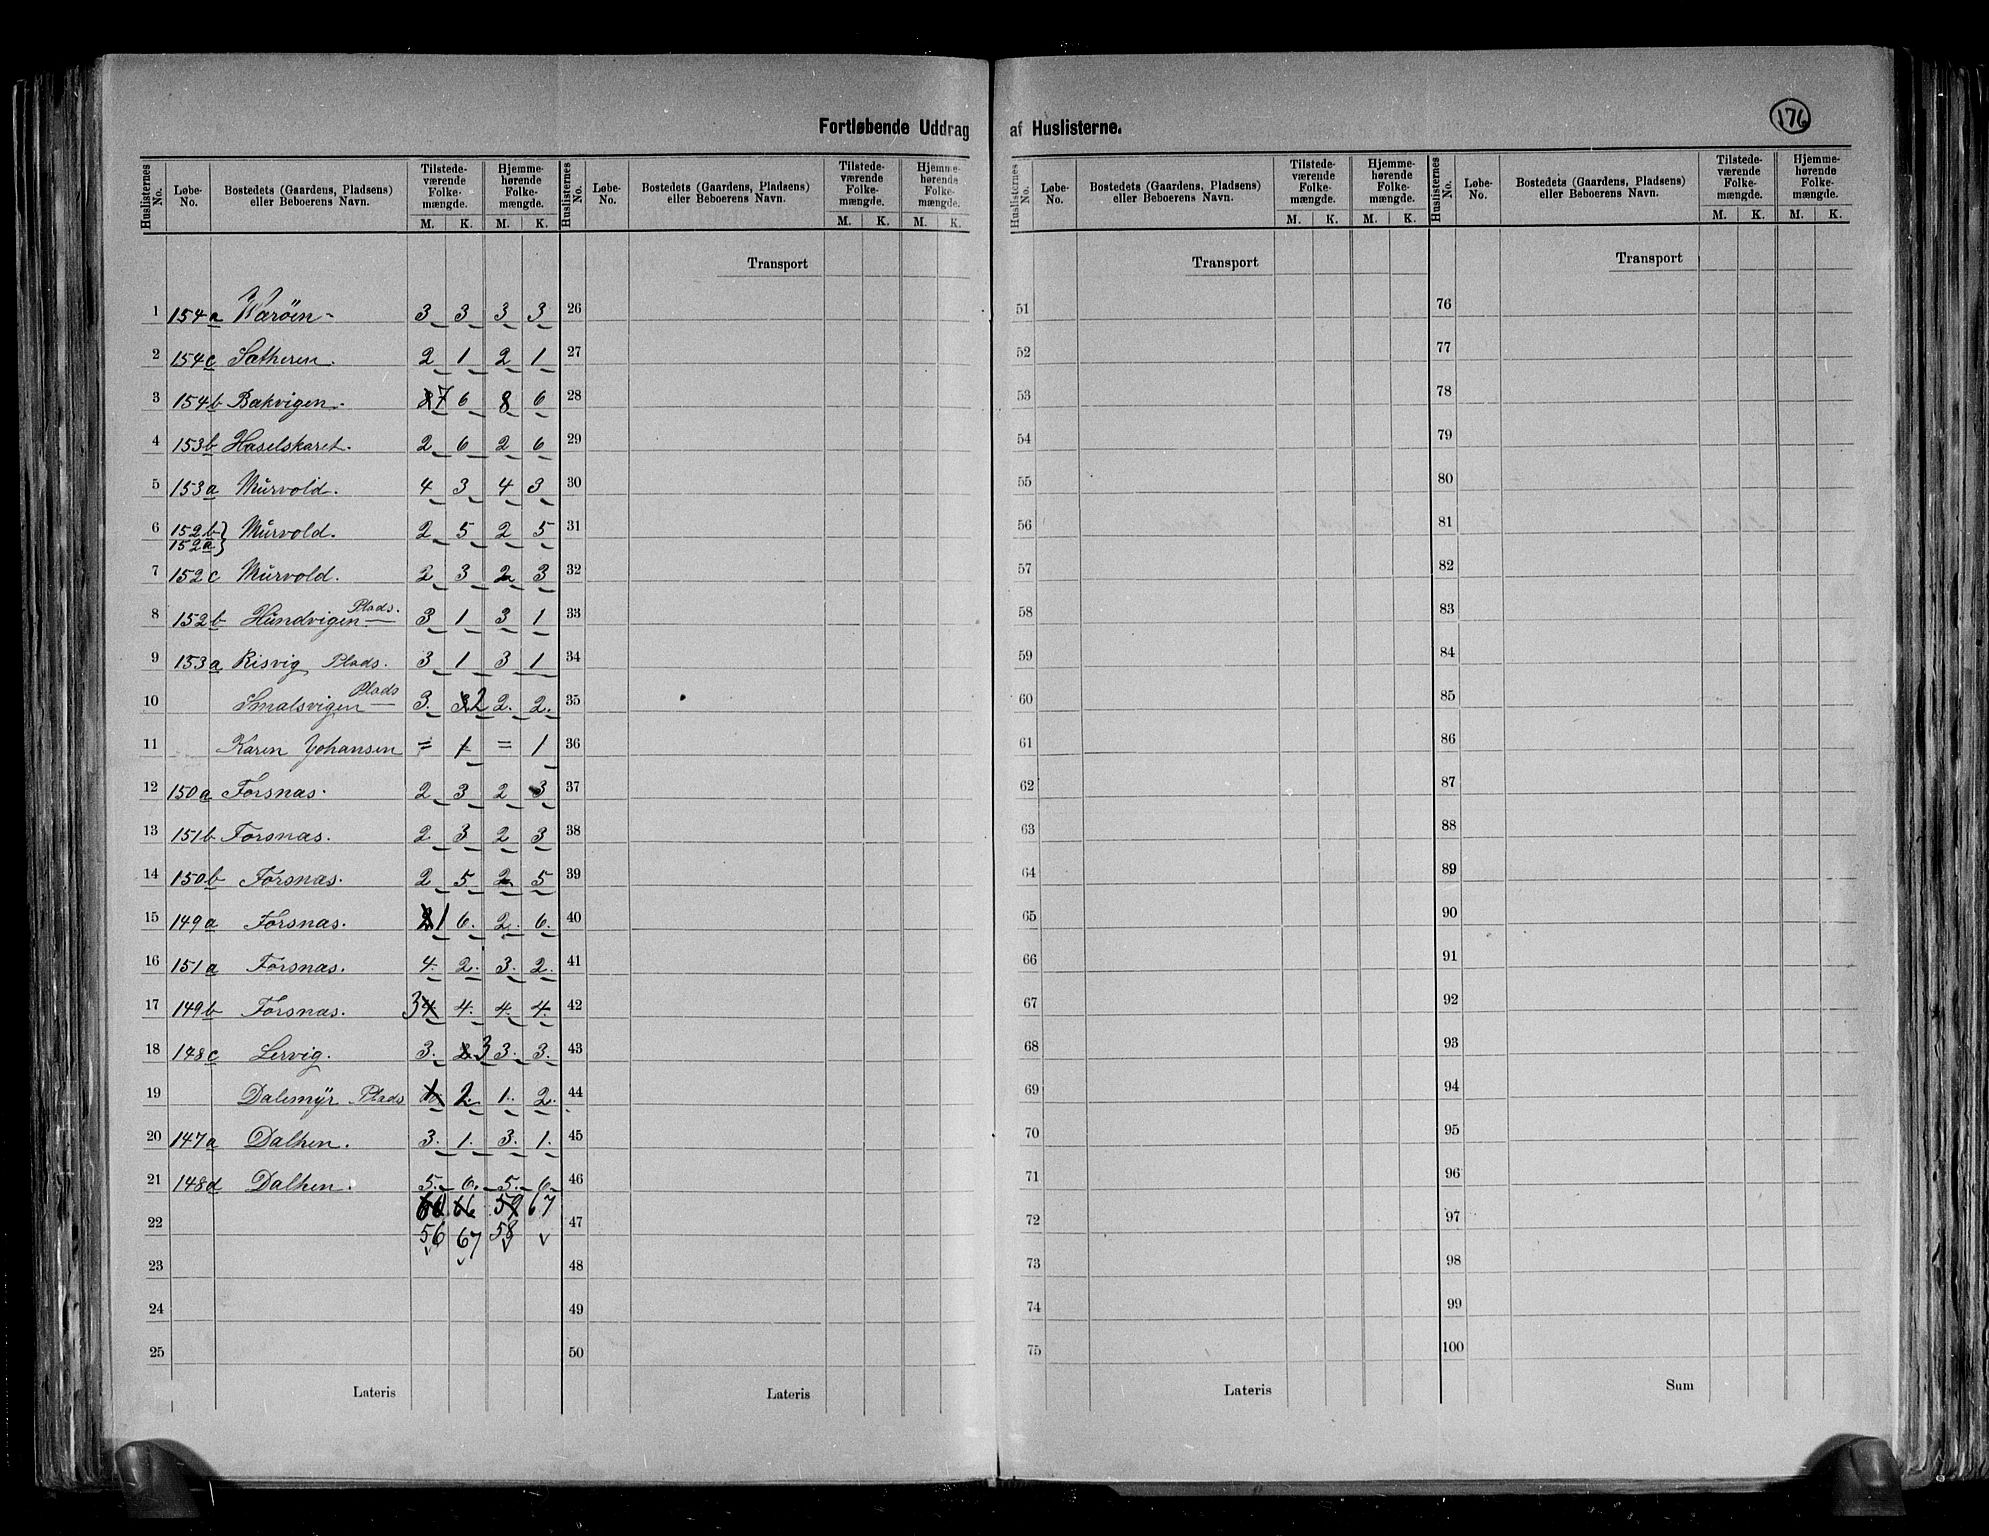 176
Fortløbende Uddrag af Huslisterne.
Huslisternes No. Løbe-No. Bostedets (Gaardens, Pladsens) eller Beboerens Navn. Tilstedeværende Folkemængde. M. K. Hjemmehørende Folkemængde. M. K.
Huslisternes No. Løbe-No. Bostedets (Gaardens, Pladsens) eller Beboerens Navn. Tilstedeværende Folkemængde. M. K. Hjemmehørende Folkemængde. M. K.
Huslisternes No. Løbe-No. Bostedets (Gaardens, Pladsens) eller Beboerens Navn. Tilstedeværende Folkemængde. M. K. Hjemmehørende Folkemængde. M. K.
Huslisternes No. Løbe-No. Bostedets (Gaardens, Pladsens) eller Beboerens Navn. Tilstedeværende Folkemængde. M. K. Hjemmehørende Folkemængde. M. K.
Transport Transport Transport
1 154a 3 3 3 3 26 51 76
2 154c Sætheren. 2 1 2 1 27 52 77
3 154b Bakvigen. 8 7 6 8 6 28 53 78
4 153b Haselskaret. 2 6 2 6 29 54 79
5 153a Murvold. 4 3 4 3 30 55 80
6 152b 152a } Murvold. 2 5 2 5 31 56 81
7 152c Murvold. 2 3 2 3 32 57 82
8 152b Hundvigen Plads. 3 1 3 1 33 58 83
9 153a Risvig Plads. 3 1 3 1 34 59 84
10 Smalsvigen Plads 3. 3 2 2. 2. 35 60 85
11 Karen Johansen = 1 = 1 36 61 86
12 150a Forsnas. 2 3 2 3 37 62 87
13 151b Forsnas. 2 3 2 3 38 63 88
14 150b Forsnas. 2 5 2 5 39 64 89
15 149a Forsnas. 2 1 6. 2. 6. 40 65 90
16 151a Forsnas. 4. 2. 3. 2. 41 66 91
17 149b Forsnas. 3 4 4. 4. 4. 42 67 92
18 148c Lervig. 3. 2 3 3. 3. 43 68 93
19 Dalemÿr Plads 1 2. 1. 2. 44 69 94
20 147a Dalhen. 3. 1. 3. 1. 45 70 95
21 148d Dalhen. 5. 6. 5. 6. 46 71 96
66 59 67
22 56 67 58 47 72 97
23 48 73 98
24 49 74 99
25 50 75 100
Lateris Lateris Lateris Sum